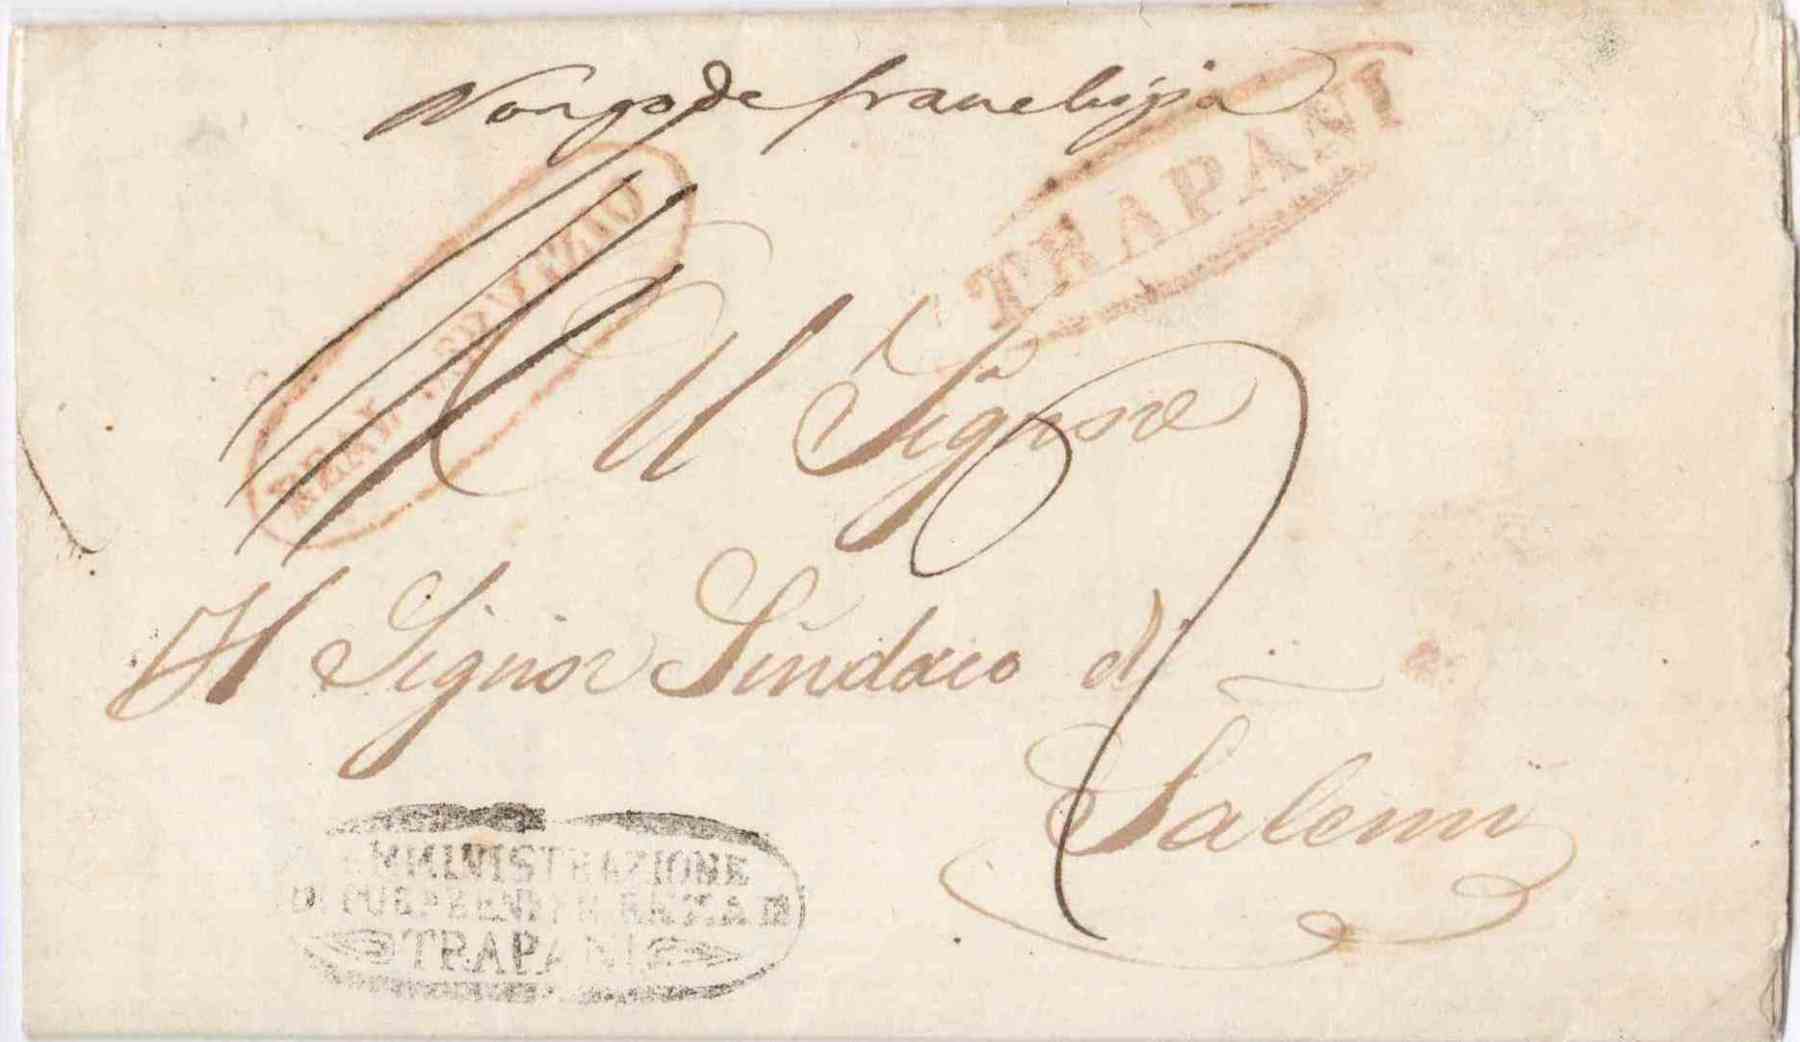 Non gode franchigia
TRAPANI
REAL SERVIZIO
Al Signore
Il Signor Sindaco di
Salemi
AMMINISTRAZIONE
TRAPANI